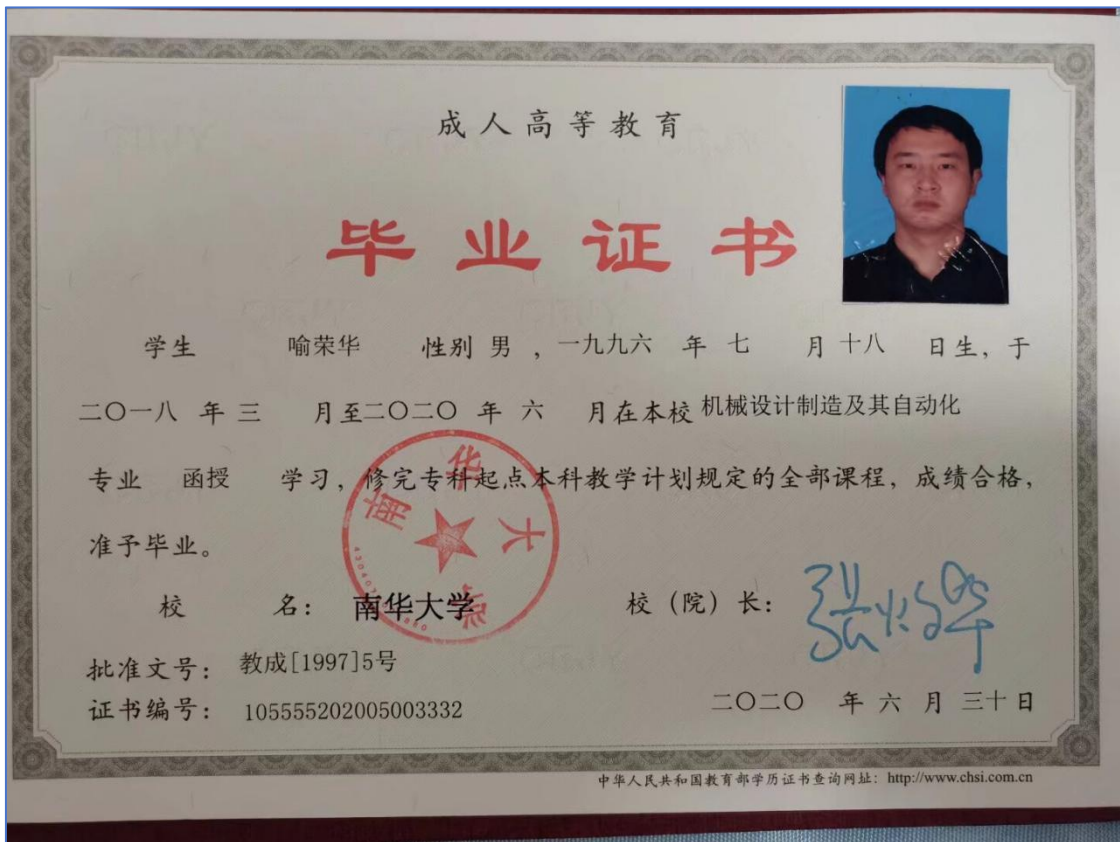 成人高等教育
毕业证书
学生 喻荣华 性别 男 ，一九九六 年 七 月 十八 日生，于
二〇一八 年 三 月至二〇二〇 年 六 月在本校 机械设计制造及其自动化
专业 函授 学习，修完专科起点本科教学计划规定的全部课程，成绩合格，
准予毕业。
校 名： 南华大学 校（院）长：
批准文号： 教成[1997]5号
证书编号： 105555202005003332
二〇二〇 年 六 月 三十 日
中华人民共和国教育部学历证书查询网址：http://www.chsi.com.cn
南华大学